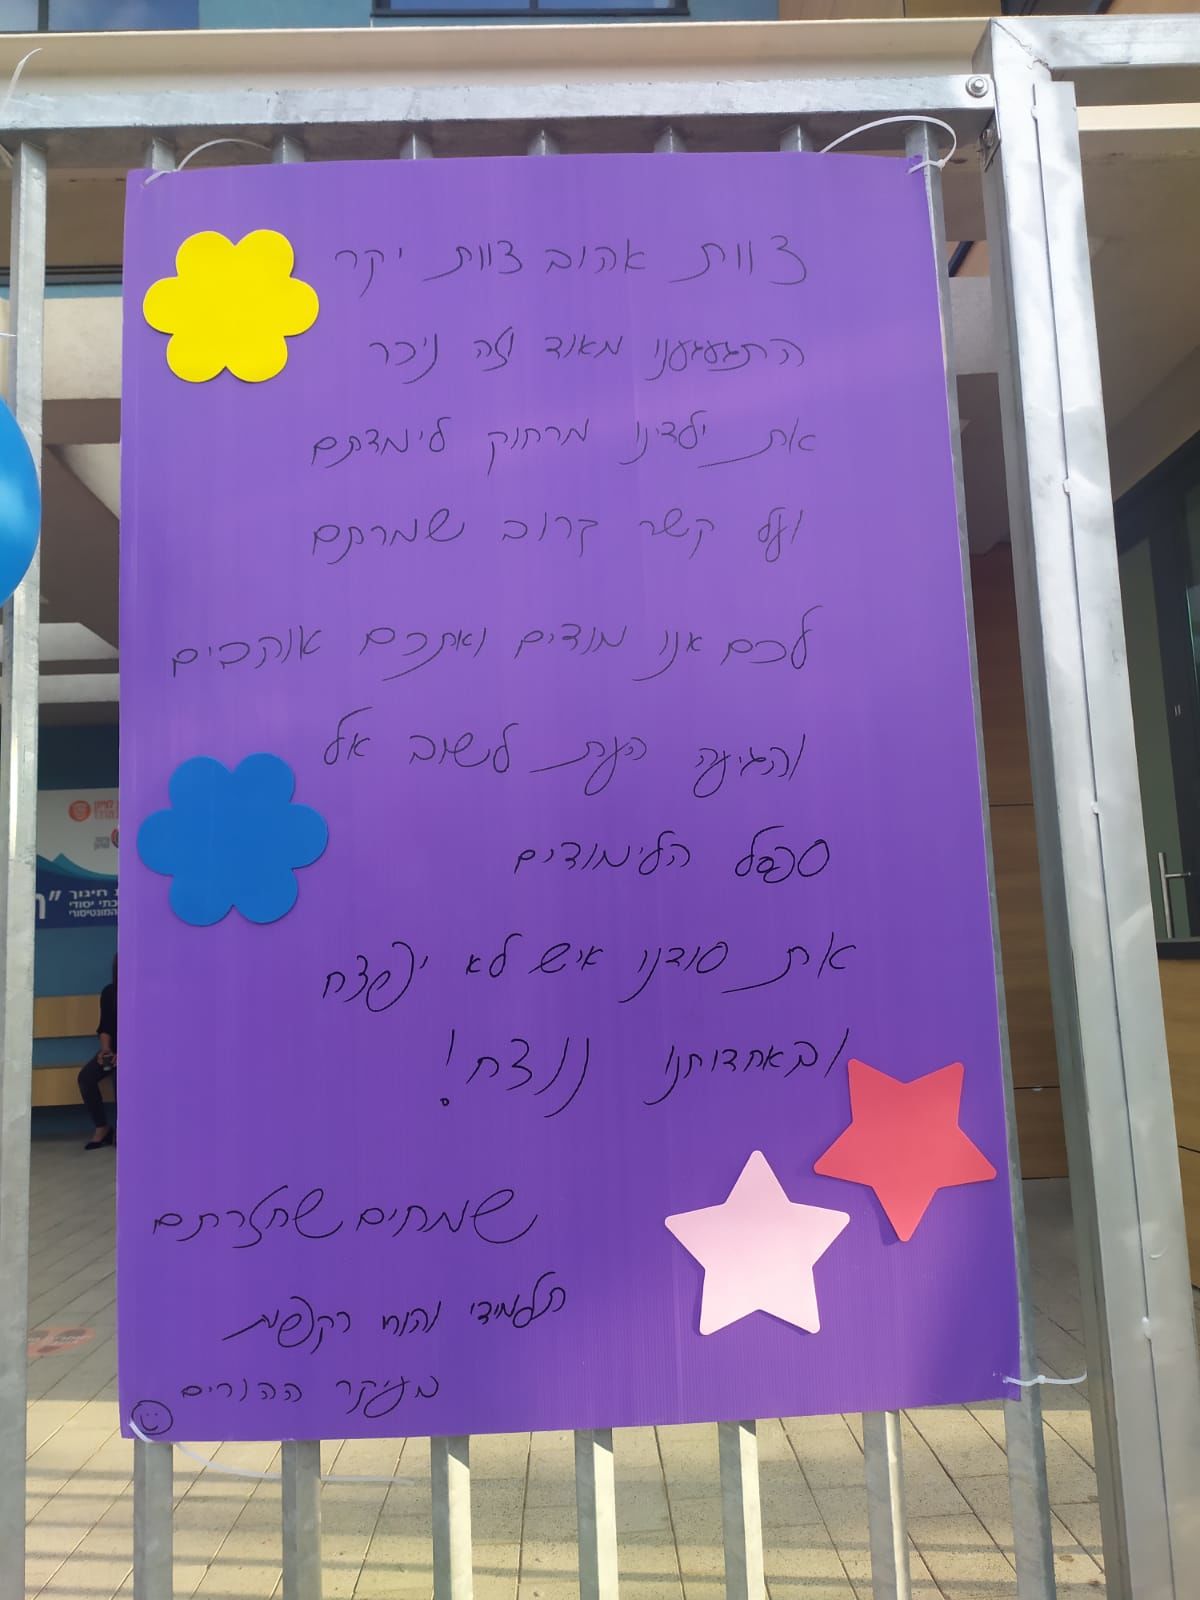 צוות אהוב צוות יקר
התגעגענו מאוד וזה ניכר
את ילדינו מרחוק לימדתם
ועל קשר קרוב שמרתם
לכם אנו מודים ואתכם אוהבים
והגיעה העת לשוב אל
ספסל הלימודים
את סודנו איש לא יפצח
ובאחדותנו ננצח!
שמחים שחזרתם
תלמידי והורי רקפות
מעיקר ההורים
חינוך
יסודי
המונטיסורי